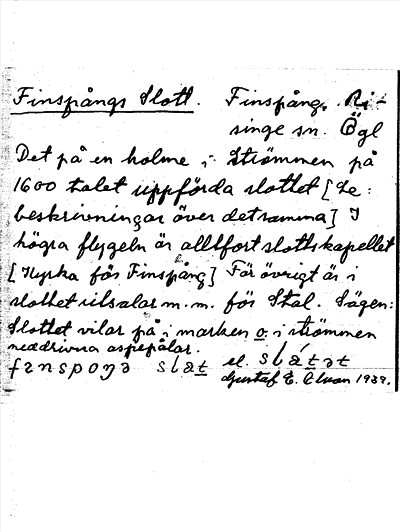 Finspångs Slott. Finspång, Ri-
singe sn. Ögl
Det på en holme i strömmen på
1600 talet uppförda slottet [Se:
beskrivningar över detsamma] I
högra flygeln är alltfort slottskapellet
[Kyrka för Finspång] För övrigt är i
slottet utsalar m.m. för Stal. Sägen:
Slottet vilar på i marken o. i strömmen
neddrivna aspepålar.
slat el. slatət
Gustaf E. Elvan 1939.